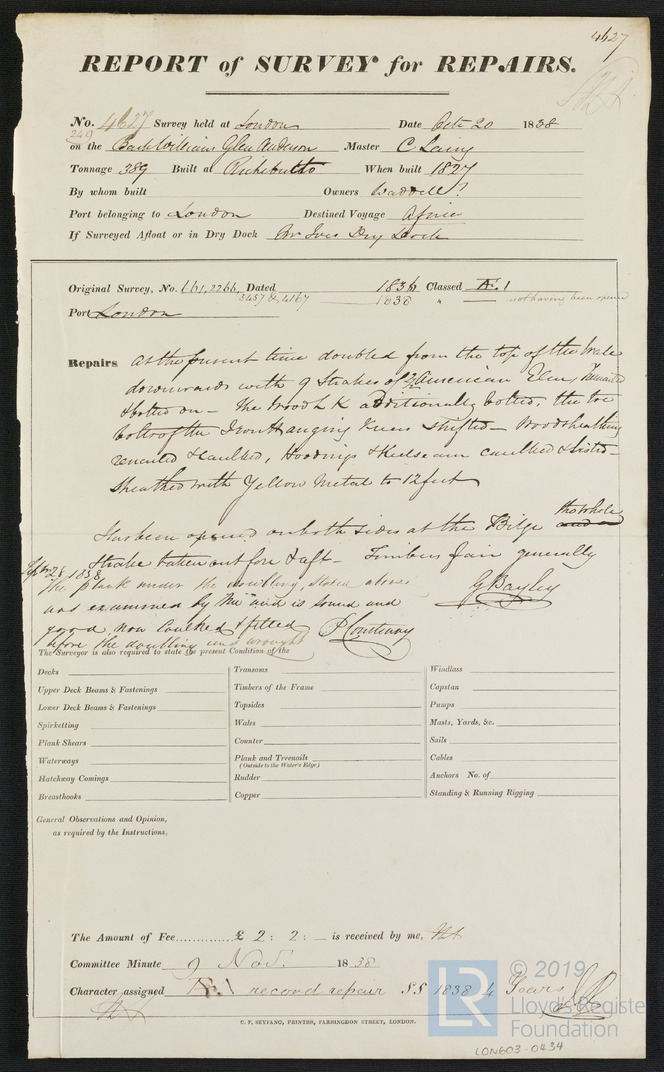 4627
REPORT of SURVEY for REPAIRS.
No. 4627 Survey held at London Date Octr 20 1838
249
on the Bark William Glen Anderson Master C Laing
Tonnage 389 Built at Richibucto When built 1827
By whom built Owners Waddell?
Port belonging to London Destined Voyage Africa
If Surveyed Afloat or in Dry Dock Dry Dock
Original Survey, No. 161, 2266, Dated 1836 Classed Æ 1
3457 & 4167 1838 " not having been opened
Port London
Repairs at the present time doubled from the top of the Wale
downwards with 9 Strakes of American Elm
& bolted on - the Wood L K additionally bolted, the toe
bolts of the Iron Hanging Knees Shifted - Woodsheathing
& Caulked, Hoodings & Keelseam caulked &
Sheathed with Yellow Metal to 12 feet
Has been opened on both sides at the Bilge the whole
Strake taken out fore & aft - Timbers fair generally
Septr 28 1838
The plank under the doubling, stated above G Bayley
was examined by me and is sound and
good, now Caulked & fitted P Courtenay
before the doubling was wrought
The Surveyor is also required to state the present Condition of the
Decks Transoms Windlass
Upper Deck Beams & Fastenings Timbers of the Frame Capstan
Lower Deck Beams & Fastenings Topsides Pumps
Spirketting Wales Masts, Yards, &c.
Plank Shears Counter Sails
Waterways Plank and Treenails Cables
(Outside to the Water's Edge)
Hatchway Comings Rudder Anchors No. of
Breasthooks Copper Standing & Running Rigging
General Observations and Opinion,
as required by the Instructions.
The Amount of Fee.............. £ 2 : 2 : — is received by me,
Committee Minute 9 Nov. 1838
Character assigned Æ 1 record repair S.S 1838 4 Years
C. F. SEYFANG, PRINTER, FARRINGDON STREET, LONDON.
LR
© 2019
Lloyd's Register
Foundation
LON603-0434